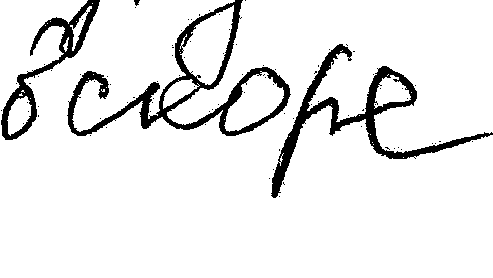 вскоре